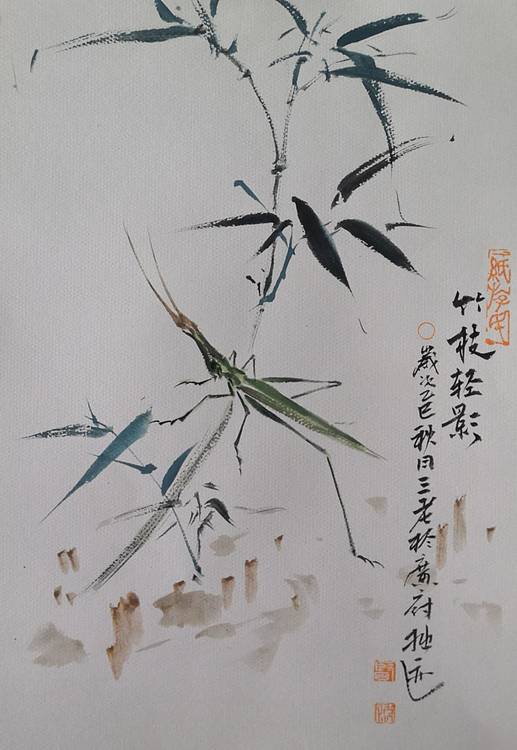 竹枝轻影
歲次乙巳秋月三老於廣府拙畫